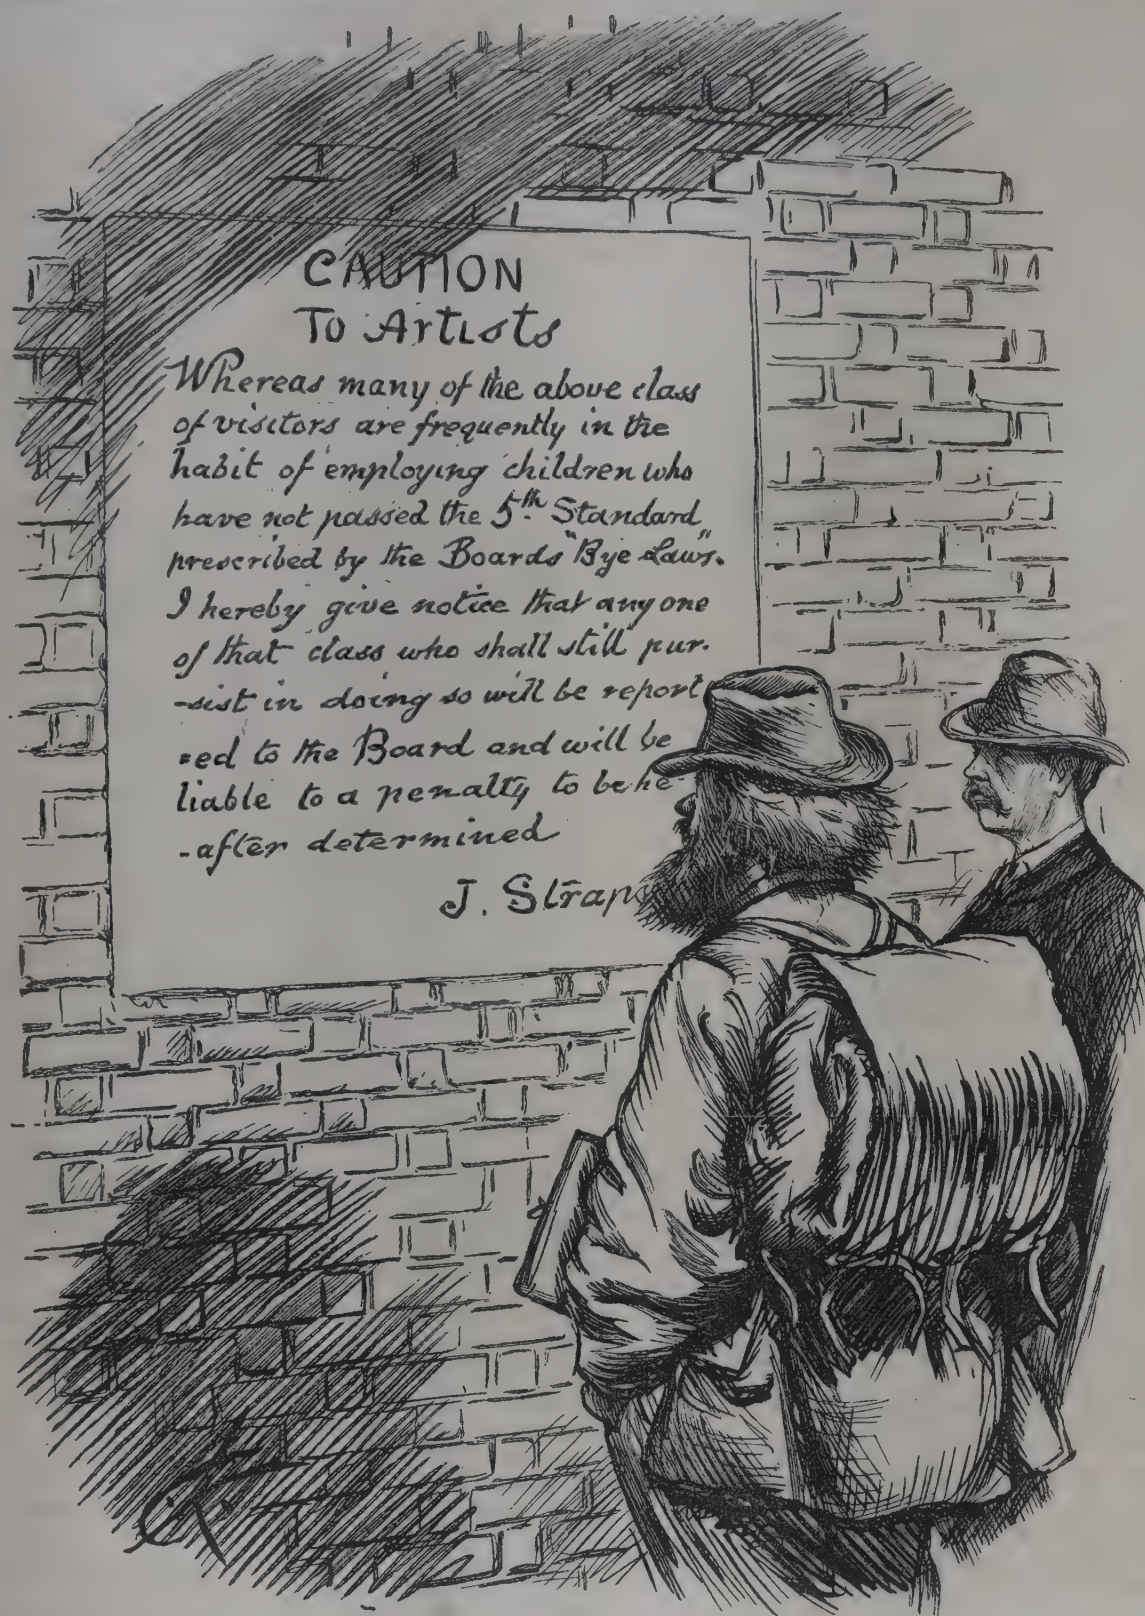 CAUTION
To Artists
Whereas many of the above class
of visitors are frequently in the
habit of employing children who
have not passed the 5th Standard
prescribed by the Boards "Bye Laws".
I hereby give notice that any one
of that class who shall still pur-
-sist in doing so will be report
=ed to the Board and will be
liable to a penalty to be he
-after determined
J. Strap